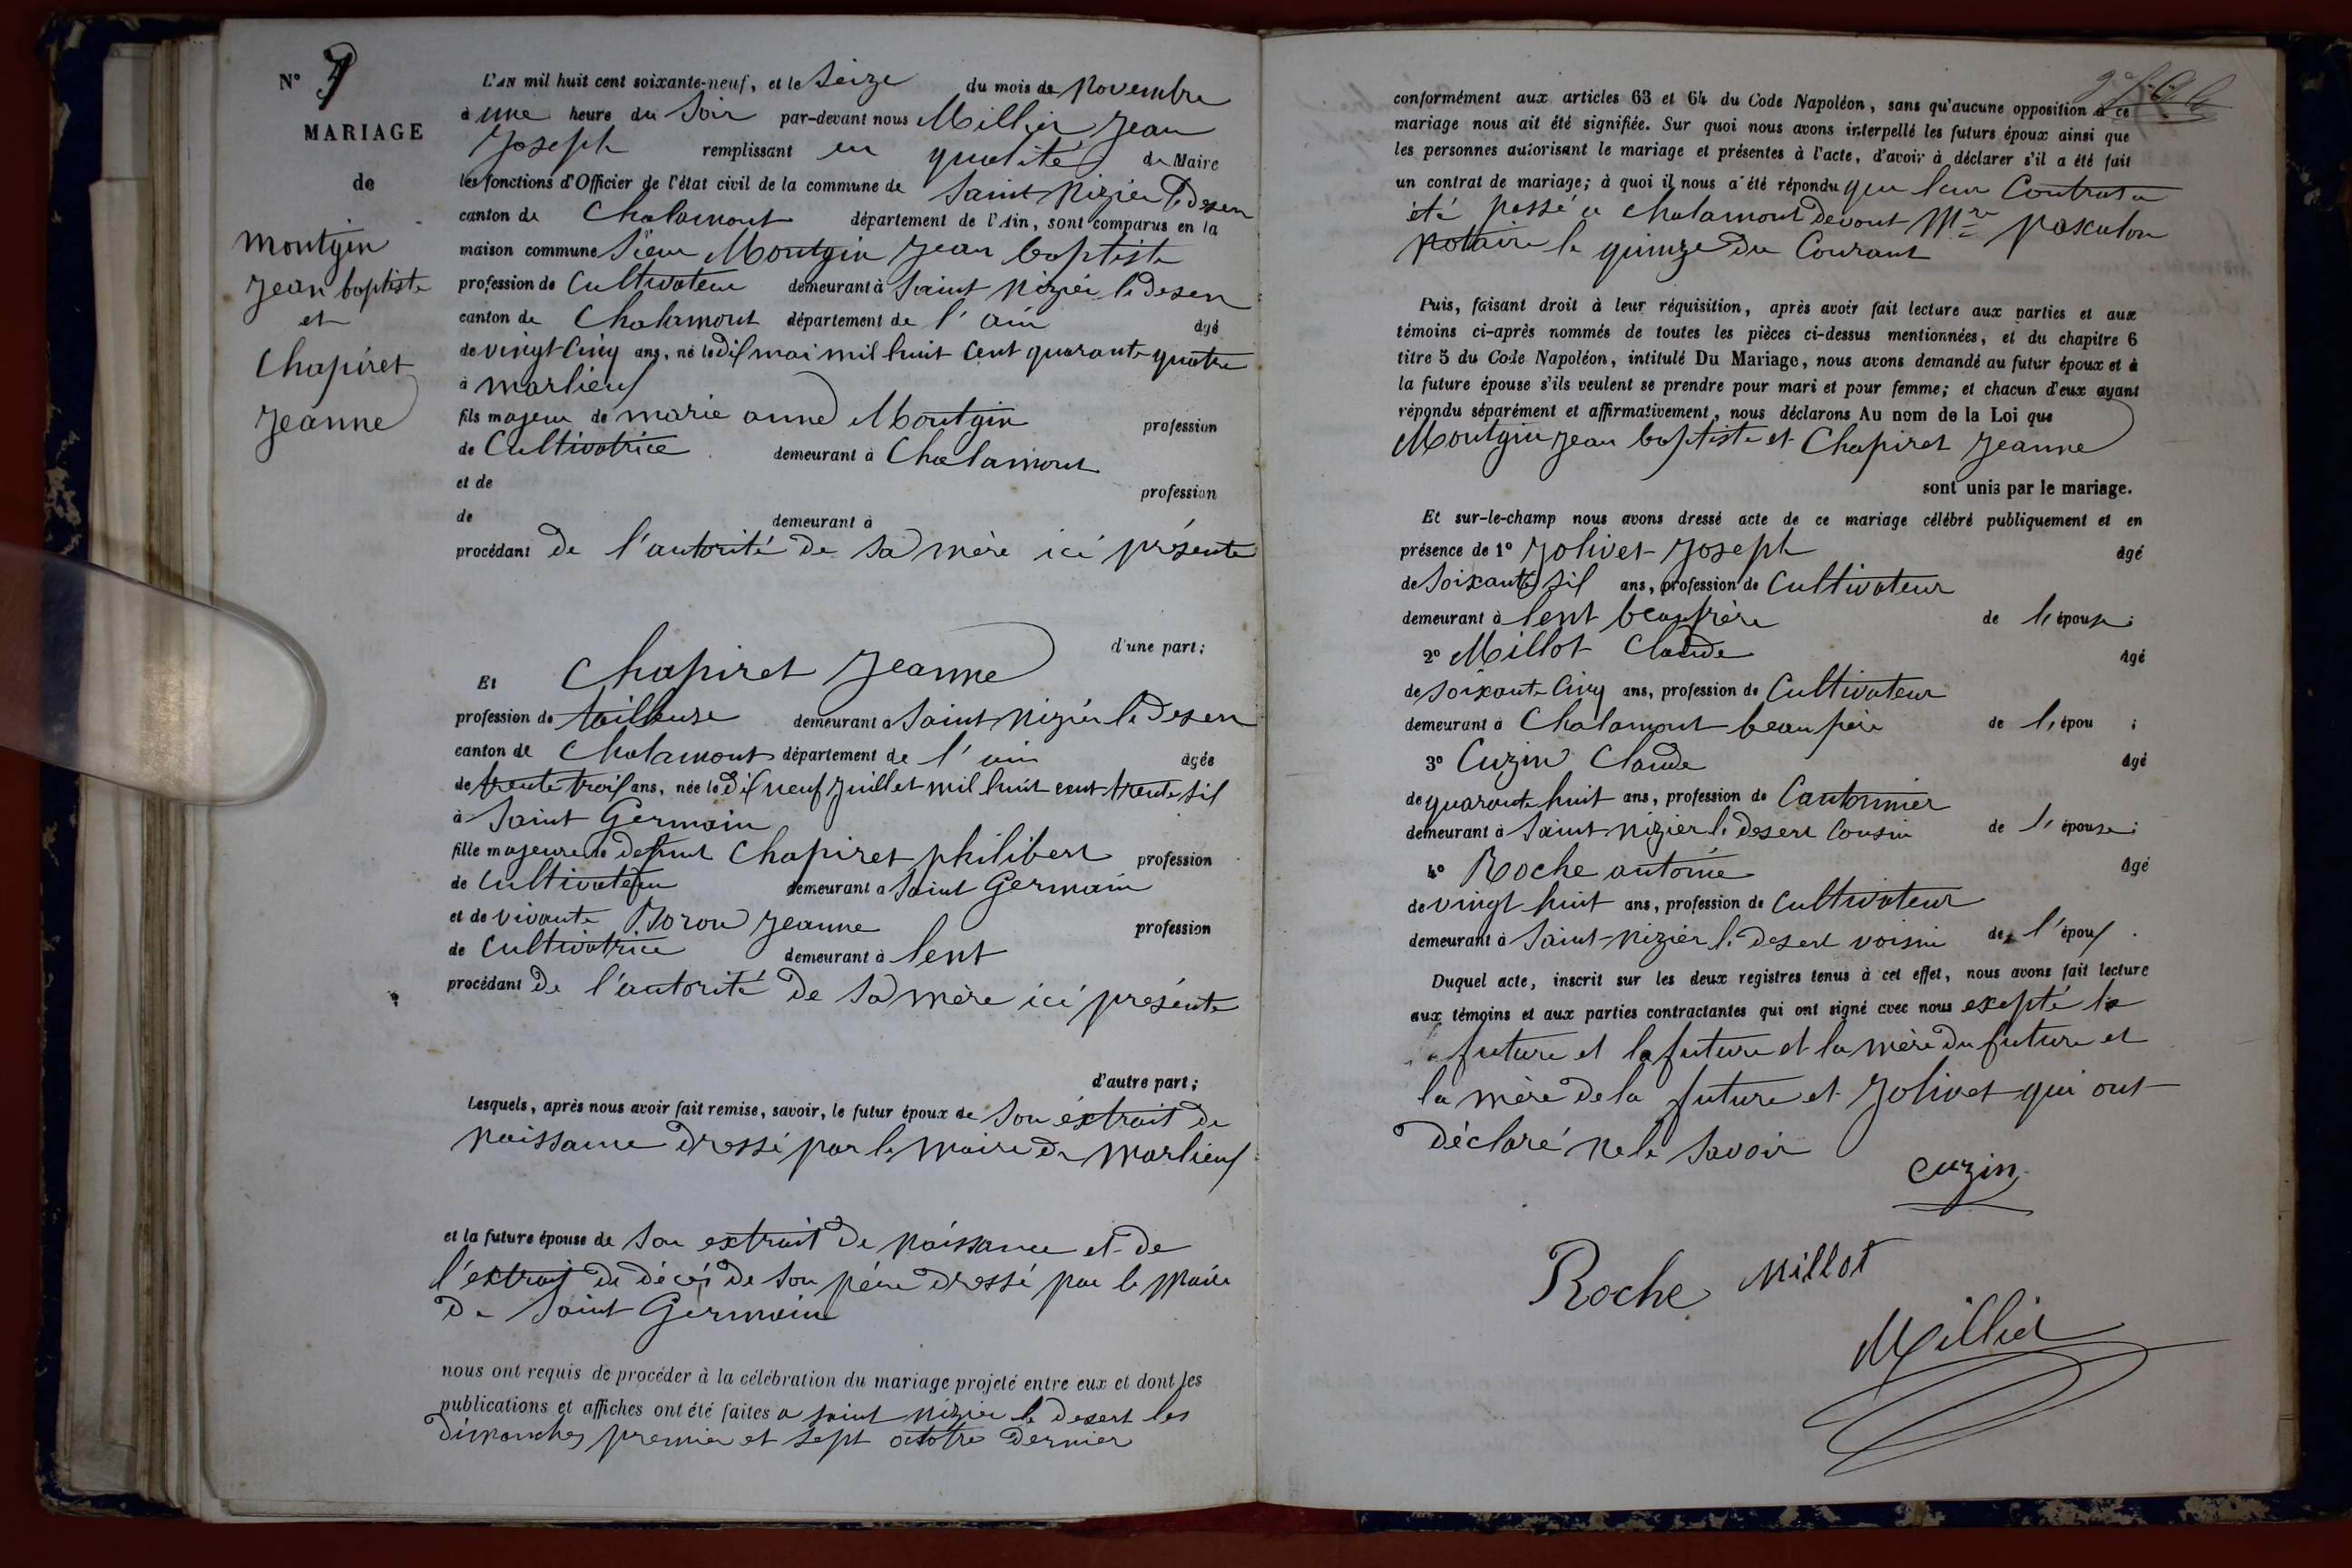 N°
MARIAGE
de
Montgin
Jean baptiste
et
Chapiret
Jeanne
L'AN mil huit cent soixante-neuf, et le Seize du mois de Novembre
à une heure du Soir par-devant nous Millier Jean
Joseph remplissant en qualité de Maire
les fonctions d'Officier de l'état civil de la commune de Saint Nizier le Desert
canton de Chalamont département de l'Ain, sont comparus en la
maison commune Sieur Montgin Jean baptiste
profession de Cultivateur demeurant à Saint Nizier le Desert
canton de Chalamont département de l'ain âgé
de vingt Cinq ans, né le Dix mai mil huit Cent quarante quatre
à Marlieux
fils majeur de marie anne Montgin profession
de Cultivatrice demeurant à Chalamont
et de profession
de demeurant à
procédant de l'autorité de Sa mère ici présente
d'une part;
Et Chapiret Jeanne
profession de tailleuse demeurant à Saint Nizier le Desert
canton de Chalamont département de l'ain âgée
de trente trois ans, née le Dix neuf Juillet mil huit cent trente six
à Saint Germain
fille majeure de defunt Chapiret philibert profession
de Cultivateur demeurant à Saint Germain
et de vivante Jeanne profession
de Cultivatrice demeurant à lent
procédant De l'autorité de Sa mère ici présente
d'autre part;
Lesquels, après nous avoir fait remise, savoir, le futur époux de Son extrait de
Naissance dressé par le Maire de Marlieux
et la future épouse de Son extrait de Naissance et de
l'extrait de décès de Son père dressé par le Maire
de Saint Germain
nous ont requis de procéder à la célébration du mariage projeté entre eux et dont les
publications et affiches ont été faites a Saint Nizier le Desert les
dimanches premier et sept octobre dernier
conformément aux articles 63 et 64 du Code Napoléon, sans qu'aucune opposition à ce
mariage nous ait été signifiée. Sur quoi nous avons interpellé les futurs époux ainsi que
les personnes autorisant le mariage et présentes à l'acte, d'avoir à déclarer s'il a été fait
un contrat de mariage; à quoi il nous a été répondu que leur Contrat a
été passé a Chalamont devant Mre pascalon
Notaire le quinze du Courant
Puis, faisant droit à leur réquisition, après avoir fait lecture aux parties et aux
témoins ci-après nommés de toutes les pièces ci-dessus mentionnées, et du chapitre 6
titre 5 du Code Napoléon, intitulé Du Mariage, nous avons demandé au futur époux et à
la future épouse s'ils veulent se prendre pour mari et pour femme; et chacun d'eux ayant
répondu séparément et affirmativement, nous déclarons Au nom de la Loi que
Montgin Jean baptiste et Chapiret Jeanne
sont unis par le mariage.
Et sur-le-champ nous avons dressé acte de ce mariage célébré publiquement et en
présence de 1° Jolivet Joseph âgé
de Soixante six ans, profession de Cultivateur
demeurant à lent beaufrère de l'épouse;
2° Millot Claude âgé
de soixante Cinq ans, profession de Cultivateur
demeurant à Chalamont beau père de l'épou ;
3° Cuzin Claude âgé
de quarante huit ans, profession de Cantonnier
demeurant à Saint Nizier le desert Cousin de l'épouse;
4° Roche antoine âgé
de vingt huit ans, profession de Cultivateur
demeurant à Saint Nizier le Desert voisin de l'époux.
Duquel acte, inscrit sur les deux registres tenus à cet effet, nous avons fait lecture
aux témoins et aux parties contractantes qui ont signé avec nous exepté le
future et la future et la mère du future et
la mère de la future et Jolivet qui ont
déclaré ne le Savoir
Cuzin
Roche Millot
Millier